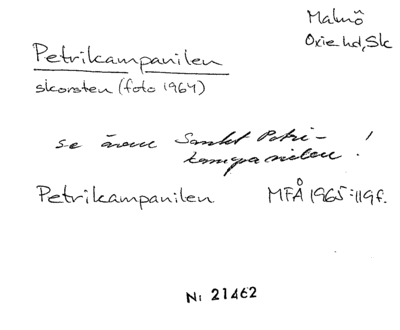 Malmö
Oxie hd, Sk
Petrikampanilen
skorsten (foto 1964)
se även Sankt Petri-
kampanilen!
Petrikampanilen MFÅ 1965:119f.
N: 21462